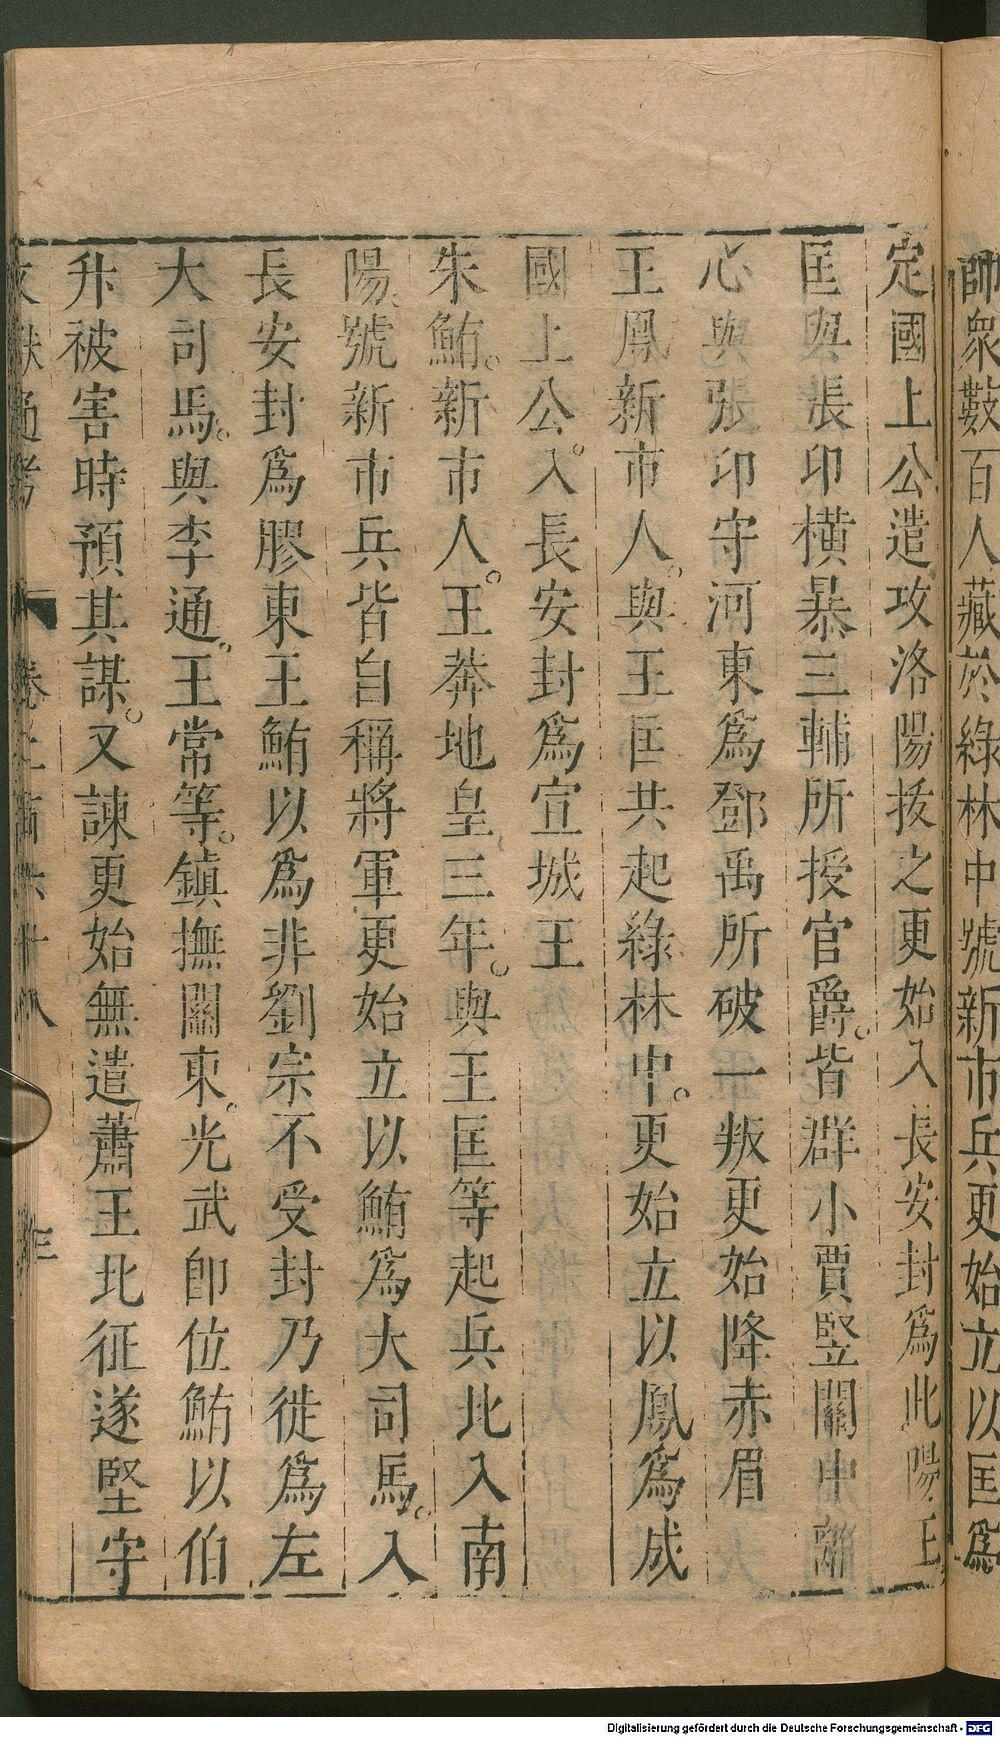 師衆數百人藏於綠林中號新市兵更始立以匡爲
定國上公遣攻洛陽拔之更始入長安封爲比陽王
匡與張卬橫暴三輔所授官爵。皆群小賈竪關中離
心與張卬守河東爲鄧禹所破一叛更始降赤眉
王鳳新市人。與王匡共起綠林中。更始立以鳳爲成
國上公。入長安封爲宜城王
朱鮪。新市人。王莽地皇三年。與王匡等起兵北入南
陽。號新市兵皆自稱將軍更始立以鮪爲大司馬。入
長安封爲膠東王鮪以爲非劉宗不受封乃徙爲左
大司馬。與李通。王常等。鎮撫關東。光武卽位鮪以伯
升被害時預其謀。又諫更始無遣蕭王北征遂堅守
文獻通考 卷二百六十八 三
Digitalisierung gefördert durch die Deutsche Forschungsgemeinschaft - DFG